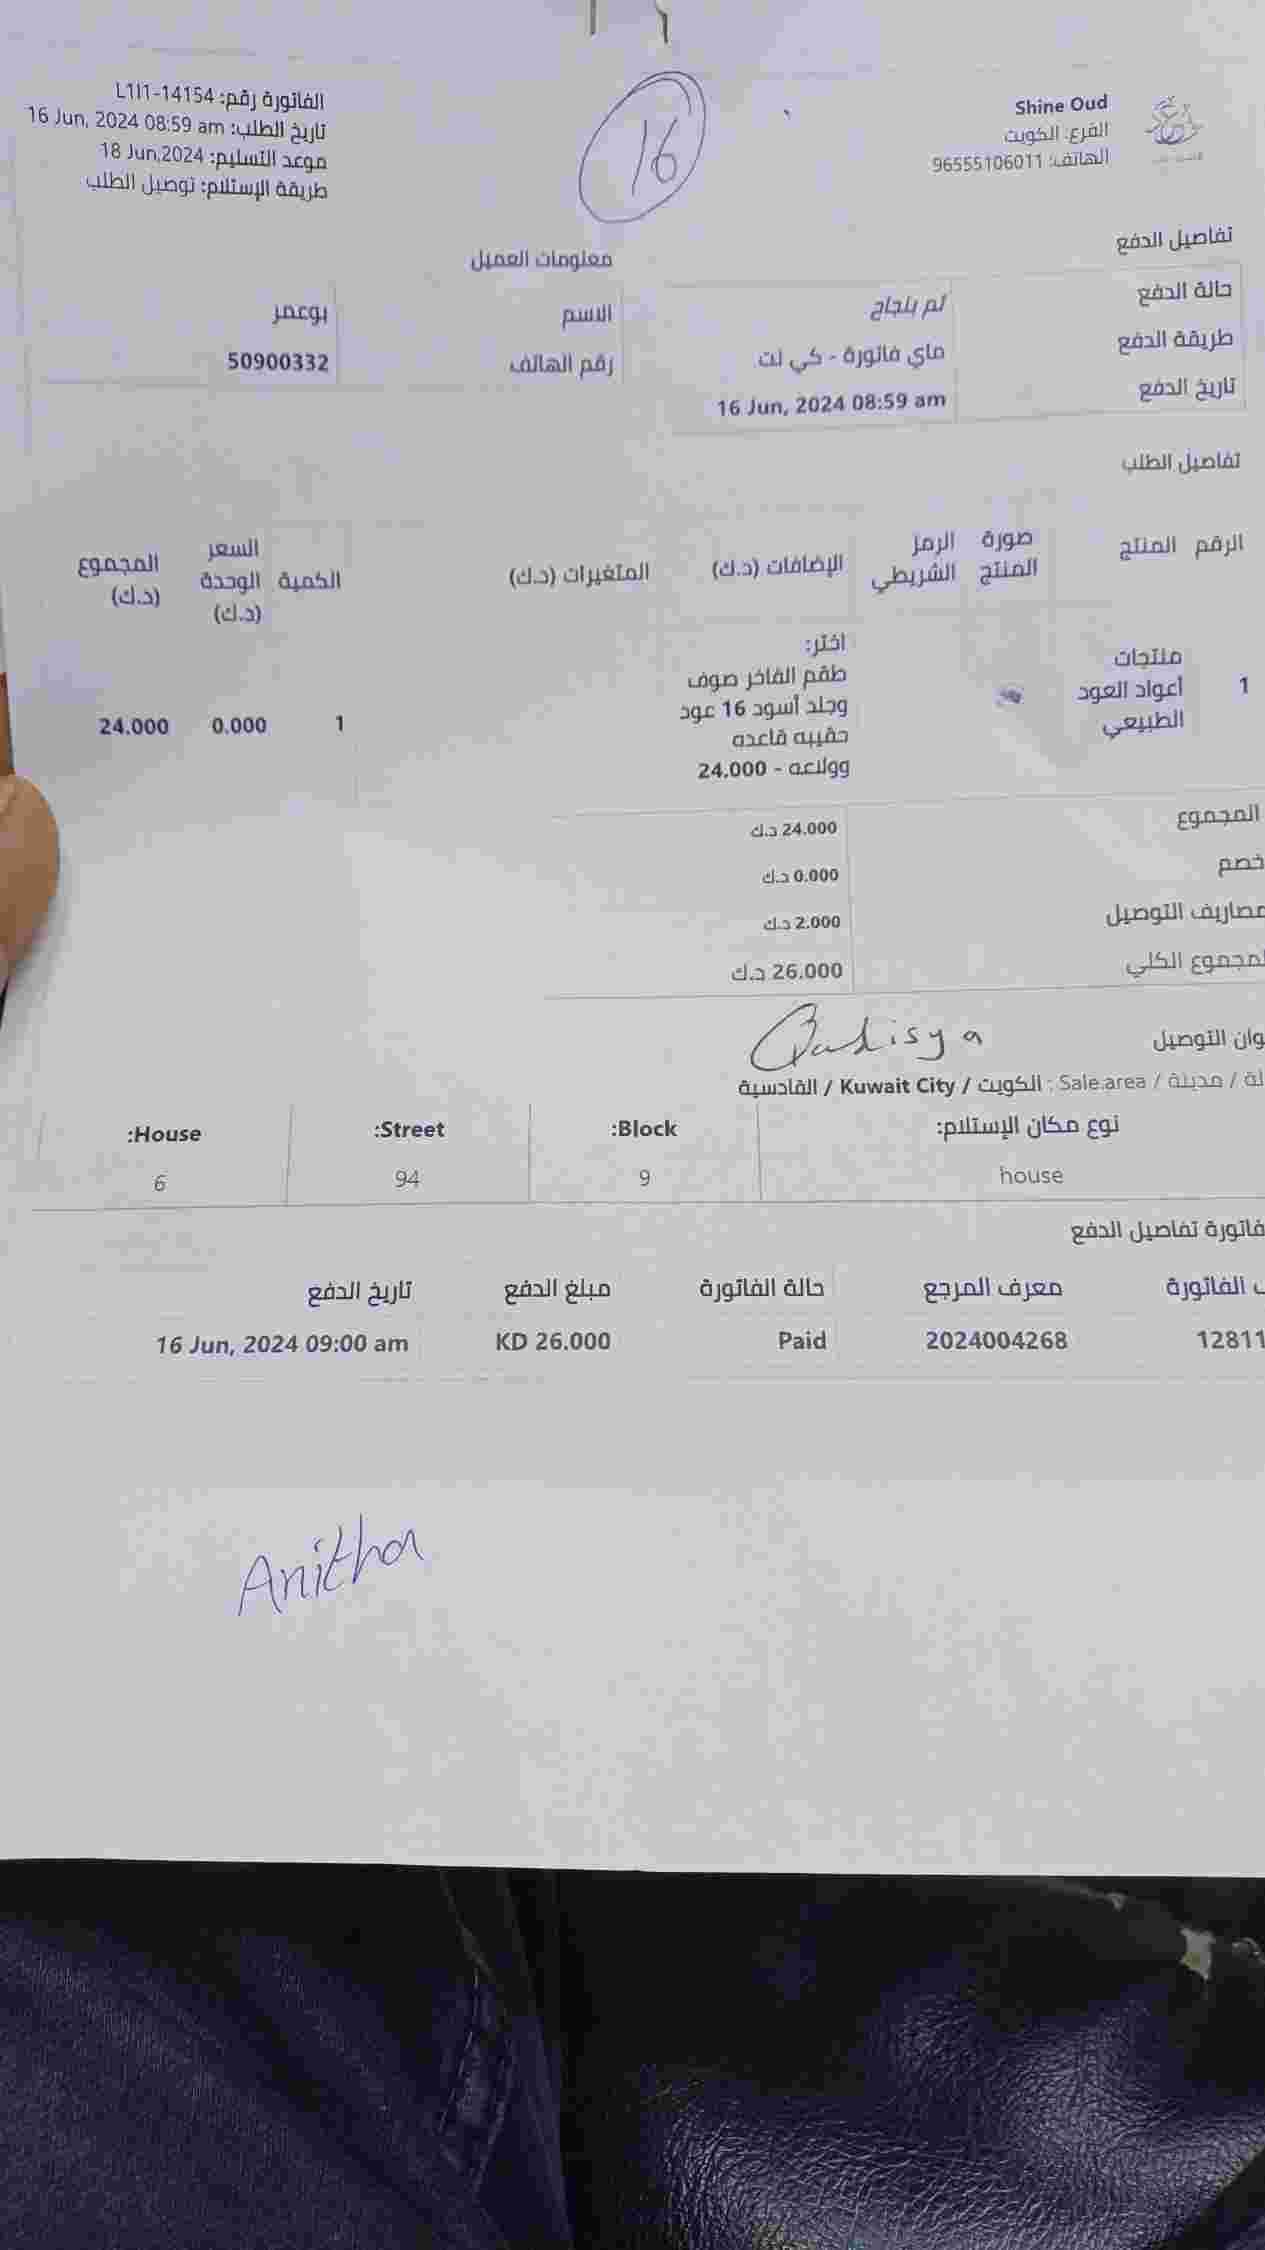 Shine Oud
الفرع: الكويت
الهاتف: 96555106011
الفاتورة رقم: L1I1-14154
تاريخ الطلب: 16 Jun, 2024 08:59 am
موعد التسليم: 18 Jun,2024
طريقة الإستلام: توصيل الطلب
16
تفاصيل الدفع
حالة الدفع تم بنجاح
طريقة الدفع ماي فاتورة - كي نت
تاريخ الدفع 16 Jun, 2024 08:59 am
معلومات العميل
الاسم بوعمر
رقم الهاتف 50900332
تفاصيل الطلب
الرقم المنتج صورة المنتج الرمز الشريطي الإضافات (د.ك) المتغيرات (د.ك) الكمية السعر الوحدة (د.ك) المجموع (د.ك)
1 منتجات أعواد العود الطبيعي
اختر:
طقم الفاخر صوف
وجلد أسود 16 عود
حقيبه قاعده
وولاعه - 24.000
1 0.000 24.000
المجموع 24.000 د.ك
خصم 0.000 د.ك
مصاريف التوصيل 2.000 د.ك
لمجموع الكلي 26.000 د.ك
وان التوصيل
Qadisya
Sale.area / مدينة / : الكويت / Kuwait City / القادسية
نوع مكان الإستلام: Block: Street: House:
house 9 94 6
فاتورة تفاصيل الدفع
الفاتورة معرف المرجع حالة الفاتورة مبلغ الدفع تاريخ الدفع
12811 2024004268 Paid KD 26.000 16 Jun, 2024 09:00 am
Anitha